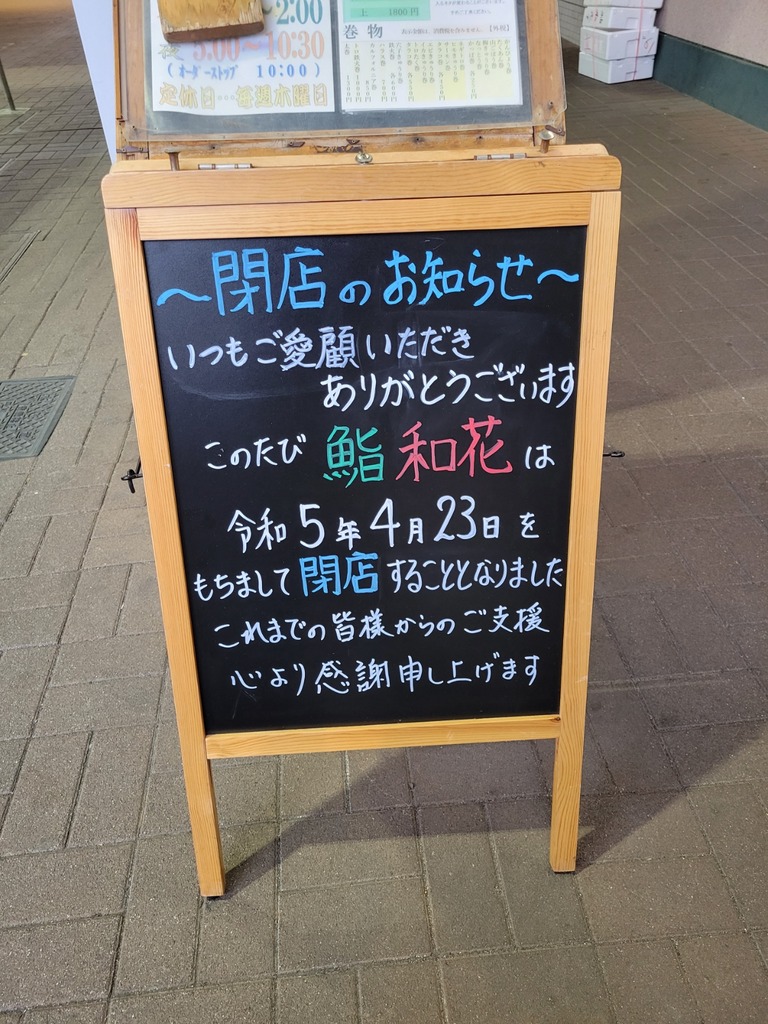 2:00
夜 5:00~10:30
(オーダーストップ 10:00)
定休日…毎週木曜日
上 1800円
巻物
【外税】
~閉店のお知らせ~
いつもご愛顧いただき
ありがとうございます
このたび 鮨 和花 は
令和5年4月23日を
もちまして閉店することとなりました
これまでの皆様からのご支援
心より感謝申し上げます